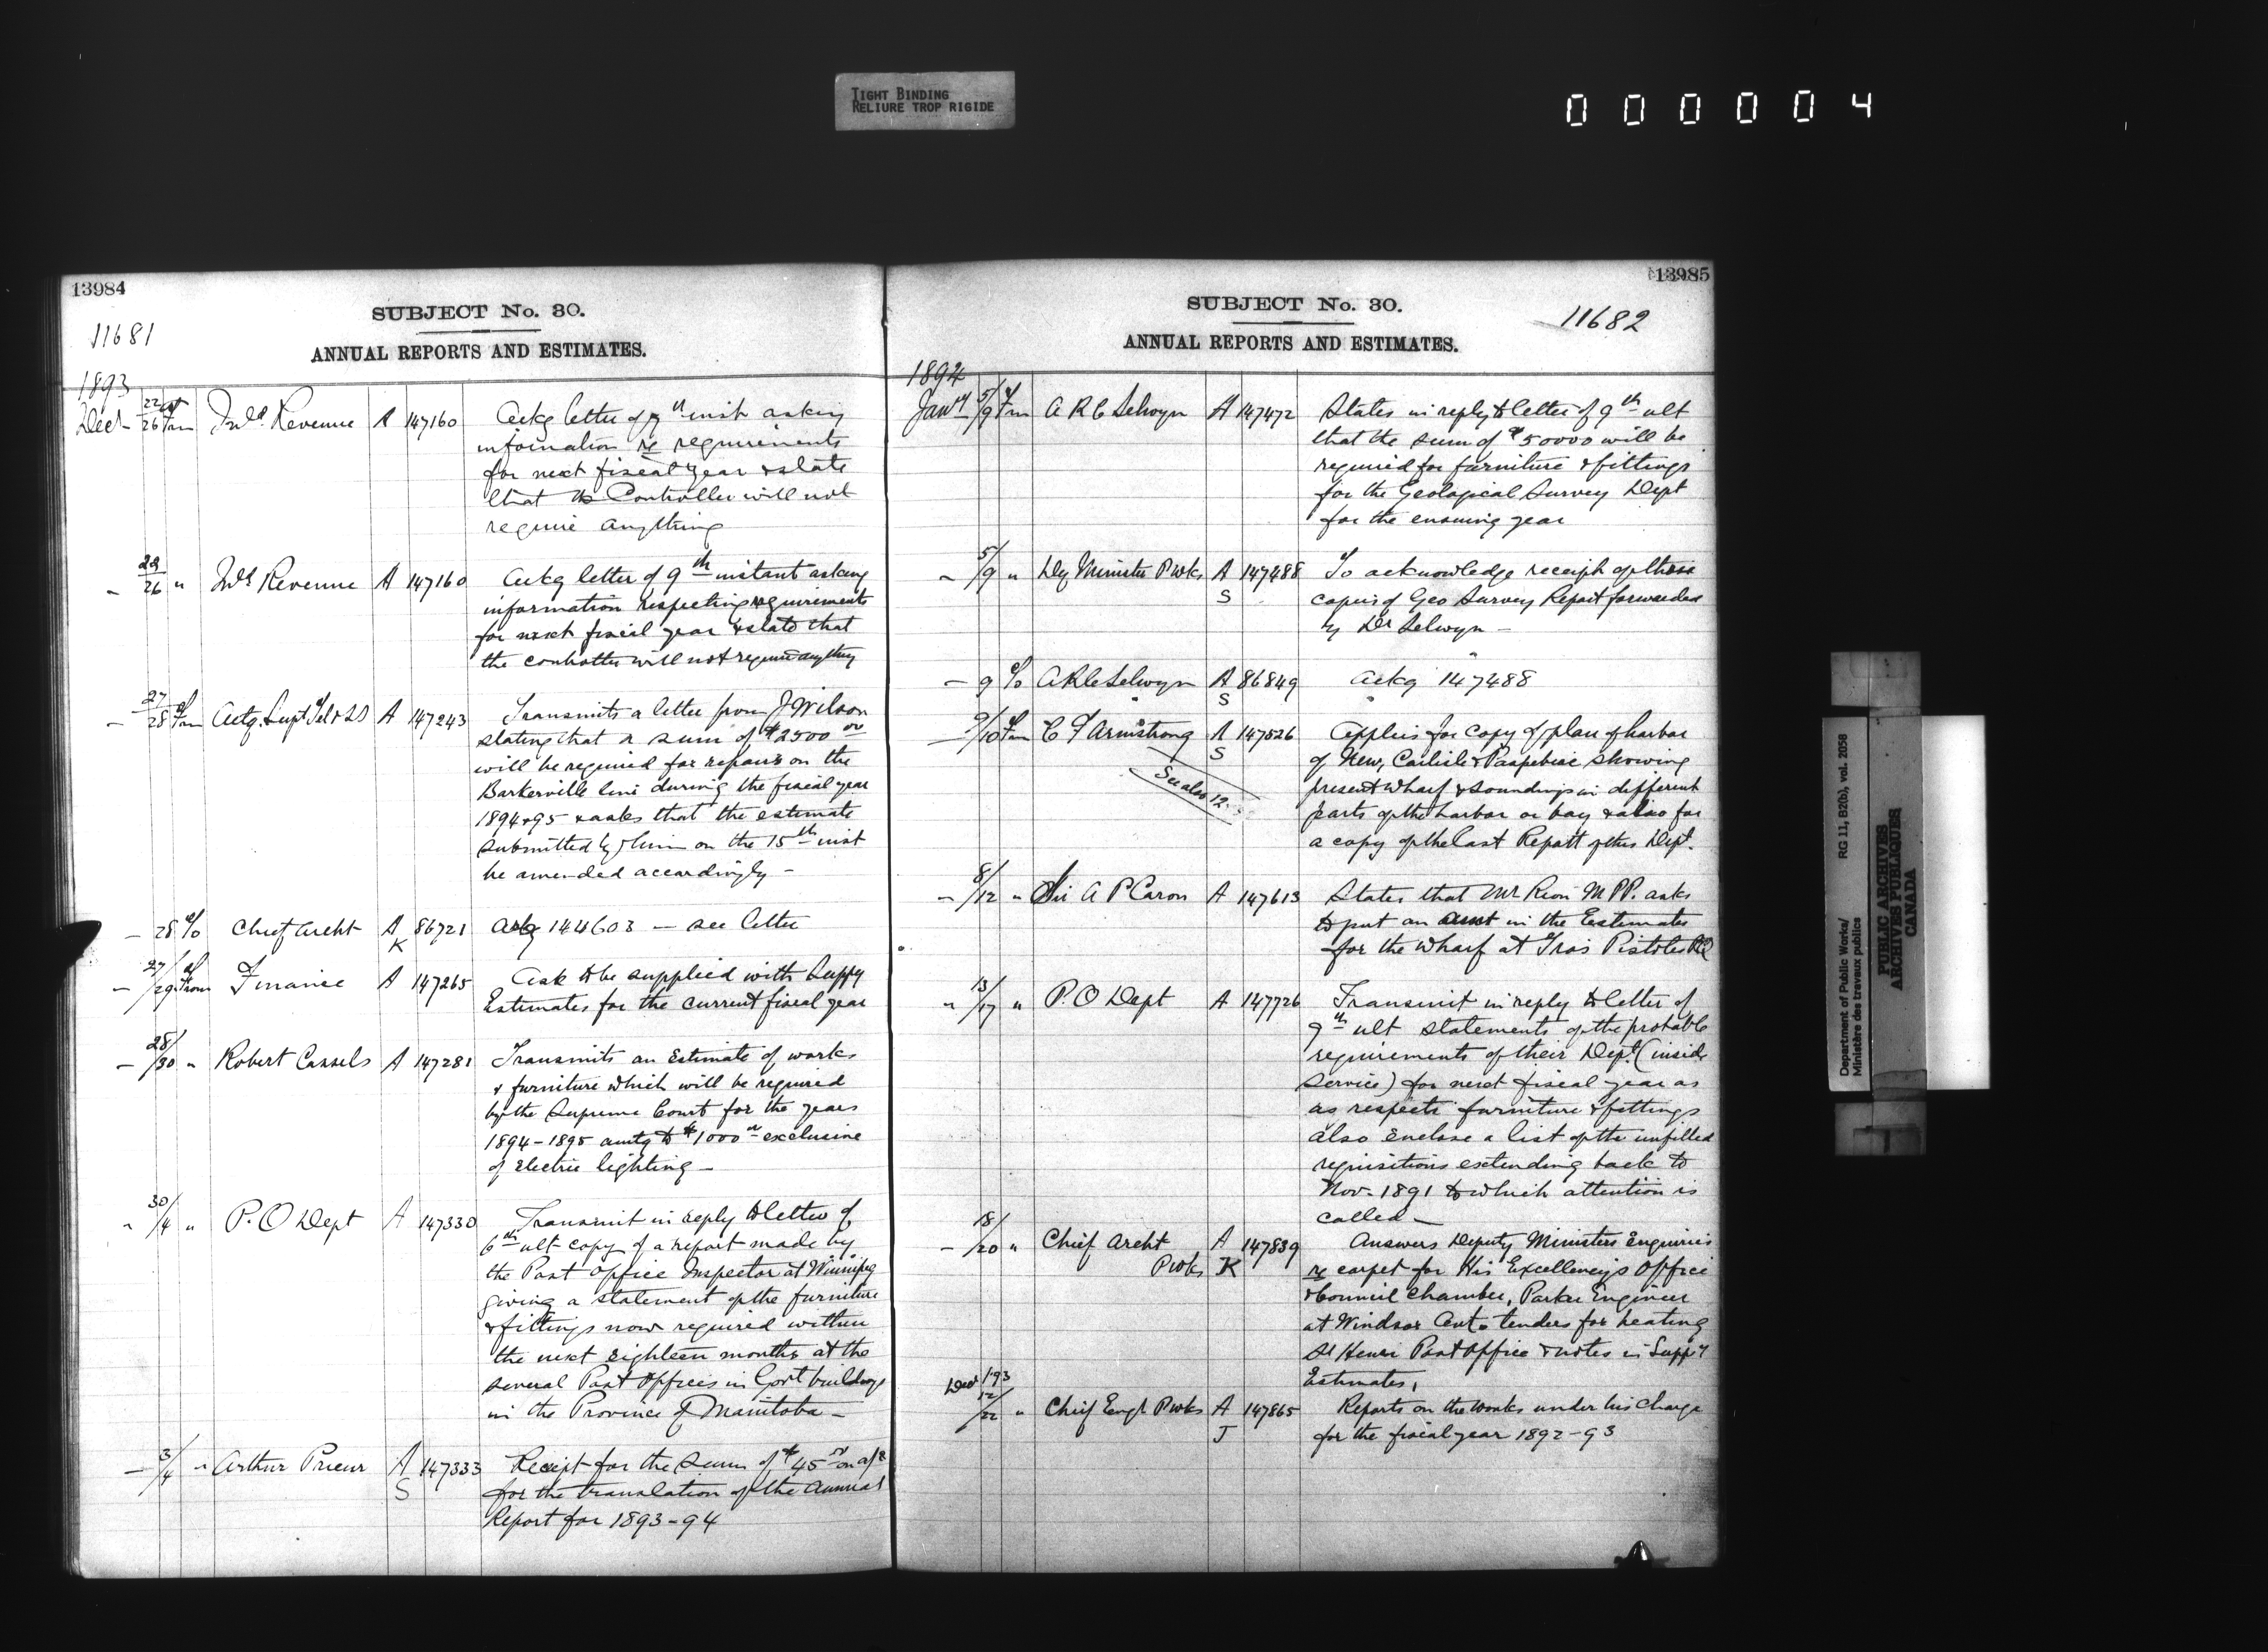 TIGHT BINDING
RELIURE TROP RIGIDE
000004
13984
SUBJECT No. 30.
11681
ANNUAL REPORTS AND ESTIMATES.
1893
Decr 22/26 of Fm Inld. Revenue A 147160 Ackg letter of 9th inst asking
information re requirements
for next fiscal year & state
that the Controller will not
require anything
" 22/26 " Inld Revenue A 147160 Ackg letter of 9th instant asking
information respecting requirements
for next fiscal year & state that
the controller will not require anything
- 27/28 of Fm Actg. Supt Tel & SS A 147243 Transmits a letter from J Wilson
stating that a sum of $2500 00
will be required for repairs on the
Barkerville line during the fiscal year
1894 & 95 & asks that the estimate
submitted by him on the 15th inst
be amended accordingly -
- 28 of To Chief Archt A K 86721 Ackg 144603 — see letter
- 27/29 of From Finance A 147265 Ask to be supplied with Suppy
Estimates for the current fiscal year
- 28/30 " Robert Cassels A 147281 Transmits an Estimate of works
& furniture which will be required
by the Supreme Court for the years
1894-1895 amtg to $1000 00 exclusive
of Electric lighting -
" 30/4 " P. O Dept A 147330 Transmit in reply to letter of
6th ult copy of a report made by
the Post Office Inspector at Winnipeg
giving a statement of the furniture
& fittings now required within
the next eighteen months at the
several Post Offices in Govt buildings
in the Province of Manitoba -
- 3/4 " Arthur Prieur A S 147333 Receipt for the sum of $45 00 on a/c
for the translation of the Annual
Report for 1893-94
13985
SUBJECT No. 30.
11682
ANNUAL REPORTS AND ESTIMATES.
1894
Jany 5/9 of Fm A R C Selwyn A 147472 States in reply to letter of 9th ult
that the sum of $50000 will be
required for furniture & fittings
for the Geological Survey Dept
for the ensuing year
" 5/9 " Dy Minister P wks A S 147488 To acknowledge receipt of these
copies of Geo Survey Report forwarded
by Dr Selwyn -
- 9 of To A R C Selwyn A S 86849 Ackg 147488
- 9/10 of Fm C F Armstrong A S 147526 Applies for copy of plan of harbor
of New Carlisle & Paspebiac showing
present wharf & soundings in different
parts of the harbor or bay & also for
a copy of the last Report of this Dept.
See also 12
- 8/12 " Sir A P Caron A 147613 States that Mr Rion M P P. asks
to put an amt in the Estimates
for the wharf at Trois Pistoles P.Q
" 13/17 " P. O Dept A 147726 Transmit in reply to letter of
9th ult statements of the probable
requirements of their Dept. (inside
service) for next fiscal year as
as respects furniture & fittings
also enclose a list of the unfilled
requisitions extending back to
Nov. 1891 to which attention is
called -
- 18/20 " Chief Archt P wks A K 147839 Answers Deputy Ministers Enquiries
re carpet for His Excellency's Office
& Council Chamber, Parker Engineer
at Windsor Ont. tenders for heating
St Henri Post Office & notes in Suppy
Estimates,
Decr /93
12/22 " Chief Engr P wks A J 147865 Reports on the works under his charge
for the fiscal year 1892-93
Department of Public Works/ RG 11, B2(b), vol. 2058
Ministère des travaux publics
PUBLIC ARCHIVES
ARCHIVES PUBLIQUES
CANADA